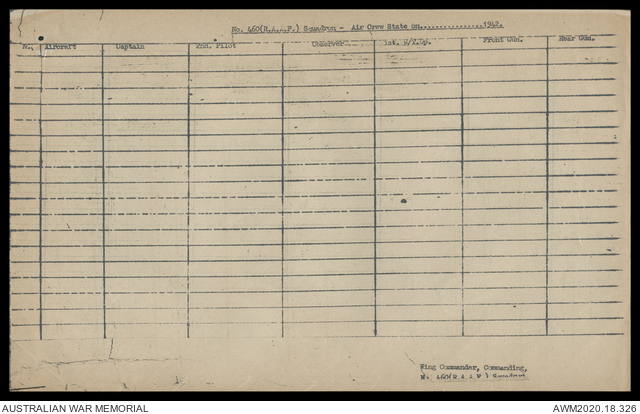 No. 460(R.A.A.F.) Squadron - Air Crew State on................1942.
N., Aircraft Captain 2nd. Pilot Observer 1st. W/T.Op. Front Gun. Rear Gun.
Wing Commander, Commanding,
No. 460(R.A.A.F.) Squadron
AUSTRALIAN WAR MEMORIAL AWM2020.18.326